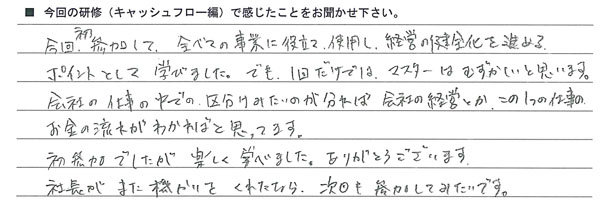 ■ 今回の研修（キャッシュフロー編）で感じたことをお聞かせ下さい。
今回、初参加して、全べての事業に役立て、使用し、経営の健全化を進める
ポイントとして学びました。でも、1回だけでは、マスターはむずかしいと思います。
会社の仕事の中での、区分けみたいのが分れば会社の経営とか、この1つの仕事の
お金の流れがわかればと思ってます。
初参加でしたが楽しく学べました。ありがとうございます。
社長がまた機かいをくれたなら、次回も参加してみたいです。